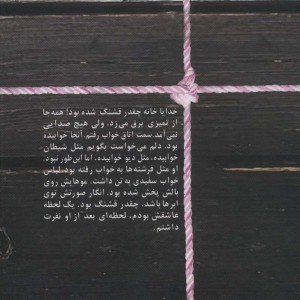 خدایا خانه چقدر قشنگ شده بود! همه‌جا
از تمیزی برق می‌زد، ولی هیچ صدایی
نمی‌آمد. سمت اتاق خواب رفتم. آنجا خوابیده
بود. دلم می‌خواست بگویم مثل شیطان
خوابیده، مثل دیو خوابیده، اما این‌طور نبود.
او مثل فرشته‌ها به خواب رفته بود. لباس
خواب سفیدی به تن داشت. موهایش روی
بالش پخش شده بود. انگار صورتش توی
ابرها باشد. چقدر قشنگ بود. یک لحظه
عاشقش بودم، لحظه‌ای بعد از او نفرت
داشتم.